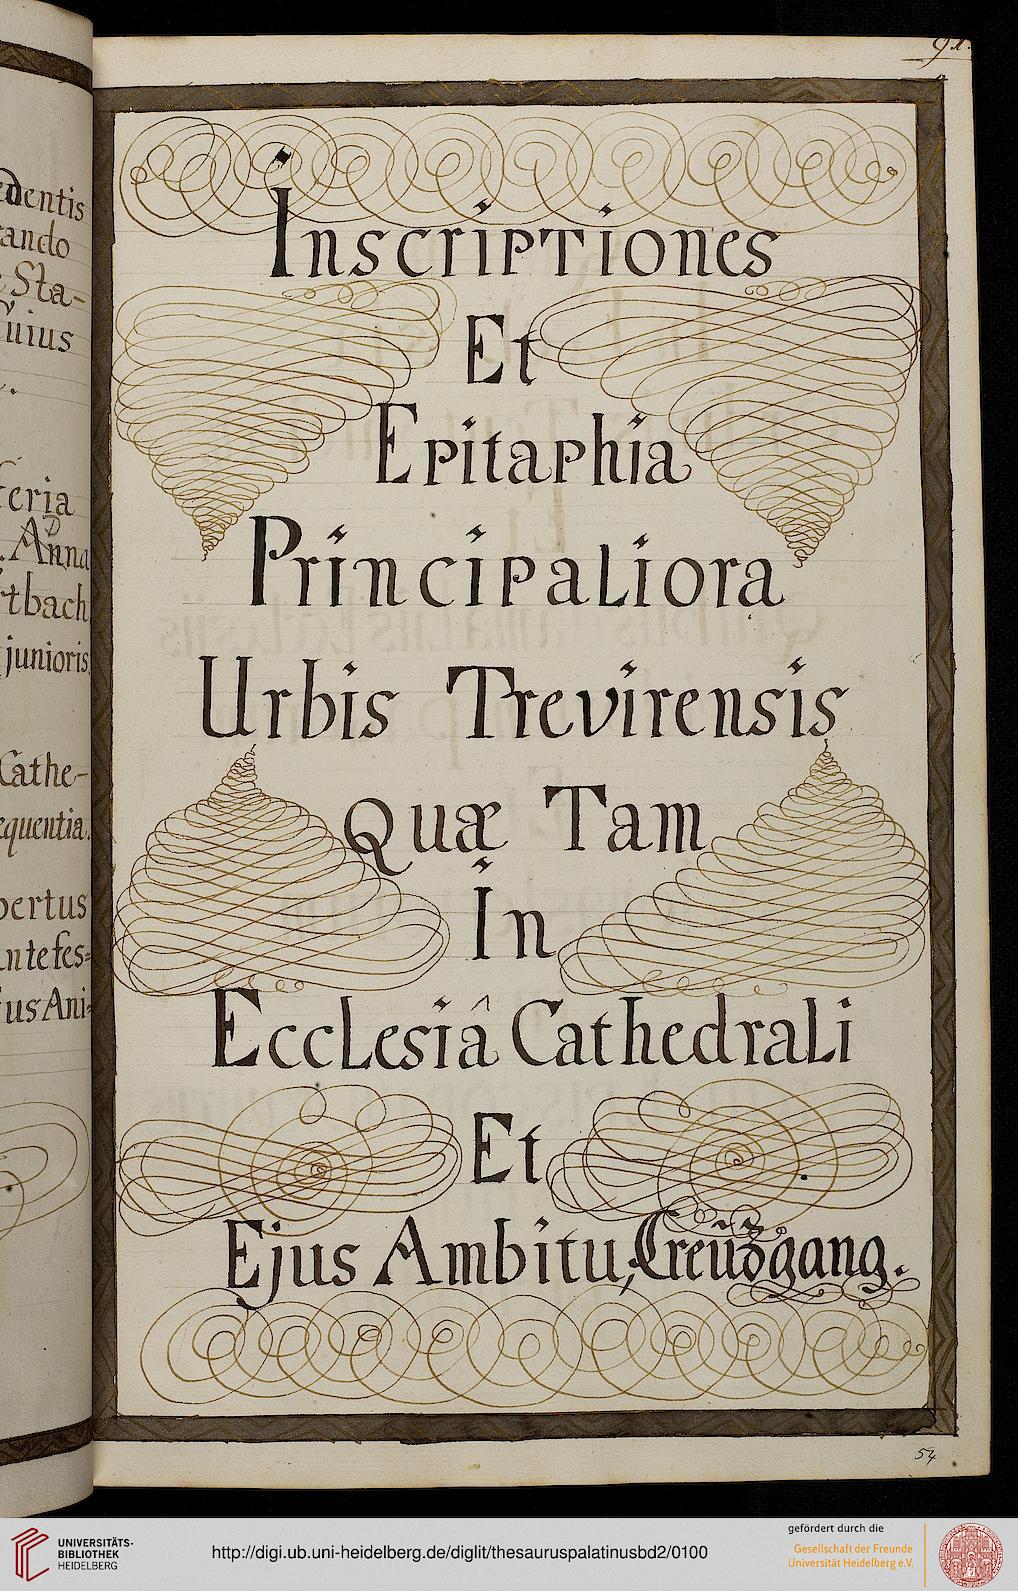 edentis
rando
Sta-
uius
eria
Anna
tbach
junioris
Cathe-
equentia.
bertus
nte fes=
us Ani=
91.
Inscriptiones
Et
Epitaphia
Principaliora
Urbis Trevirensis
Quæ Tam
In
Ecclesiâ Cathedrali
Et
Ejus Ambitu, Creützgang.
54
UNIVERSITÄTS-
BIBLIOTHEK
HEIDELBERG
http://digi.ub.uni-heidelberg.de/diglit/thesauruspalatinusbd2/0100
gefördert durch die
Gesellschaft der Freunde
Universität Heidelberg e.V.